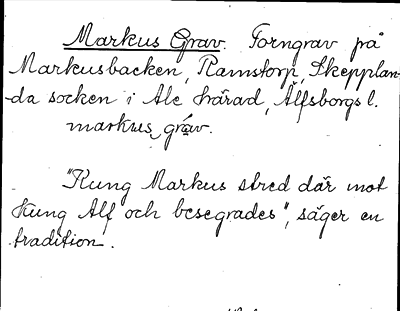 Markus Grav. Forngrav på
Markusbacken, Ramstorp, Skepplan-
da socken i Ale härad, Älfsborgs l.
markus gráv.
"Kung Markus stred där mot
Kung Alf och besegrades", säger en
tradition.